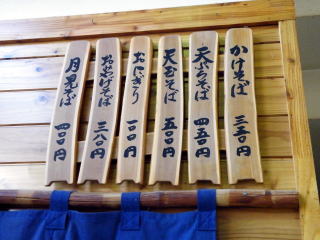 かけそば 三三〇円
天ぷらそば 四五〇円
天玉そば 五〇〇円
おにぎり 一〇〇円
おあげそば 三八〇円
月見そば 四〇〇円